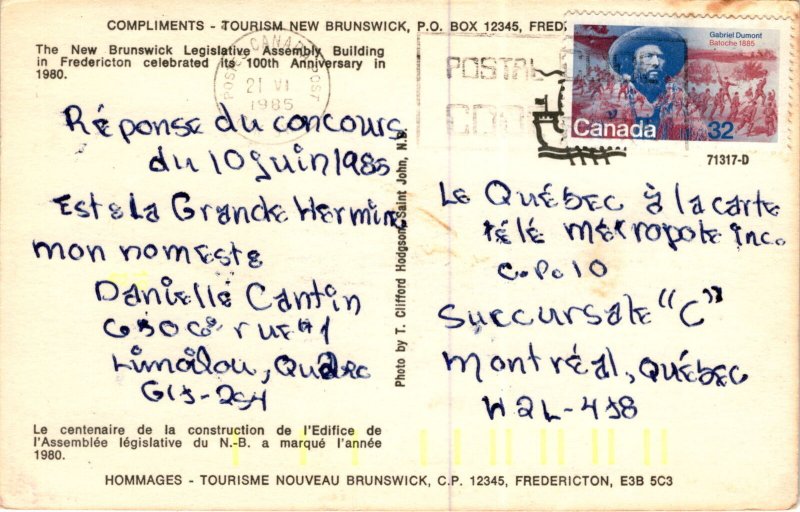 COMPLIMENTS - TOURISM NEW BRUNSWICK, P.O. BOX 12345, FRED
The New Brunswick Legislative Assembly Building
in Fredericton celebrated its 100th Anniversary in
1980.
CANADA
POST
21 VI
1985
POSTAL
CODE
Gabriel Dumont
Batoche 1885
Canada 32
71317-D
Réponse du concours
du 10 juin 1985
Est la Grande Hermine
mon nom este
Danielle Cantin
rue #1
Limoilou, Québec
Photo by T. Clifford Hodgson, Saint John, N.B.
Le Québec à la carte
télé métropole inc.
C.P. 10
Succursale "C"
Montréal, Québec
H2L-4J8
Le centenaire de la construction de l'Edifice de
l'Assemblée législative du N.-B. a marqué l'année
1980.
HOMMAGES - TOURISME NOUVEAU BRUNSWICK, C.P. 12345, FREDERICTON, E3B 5C3